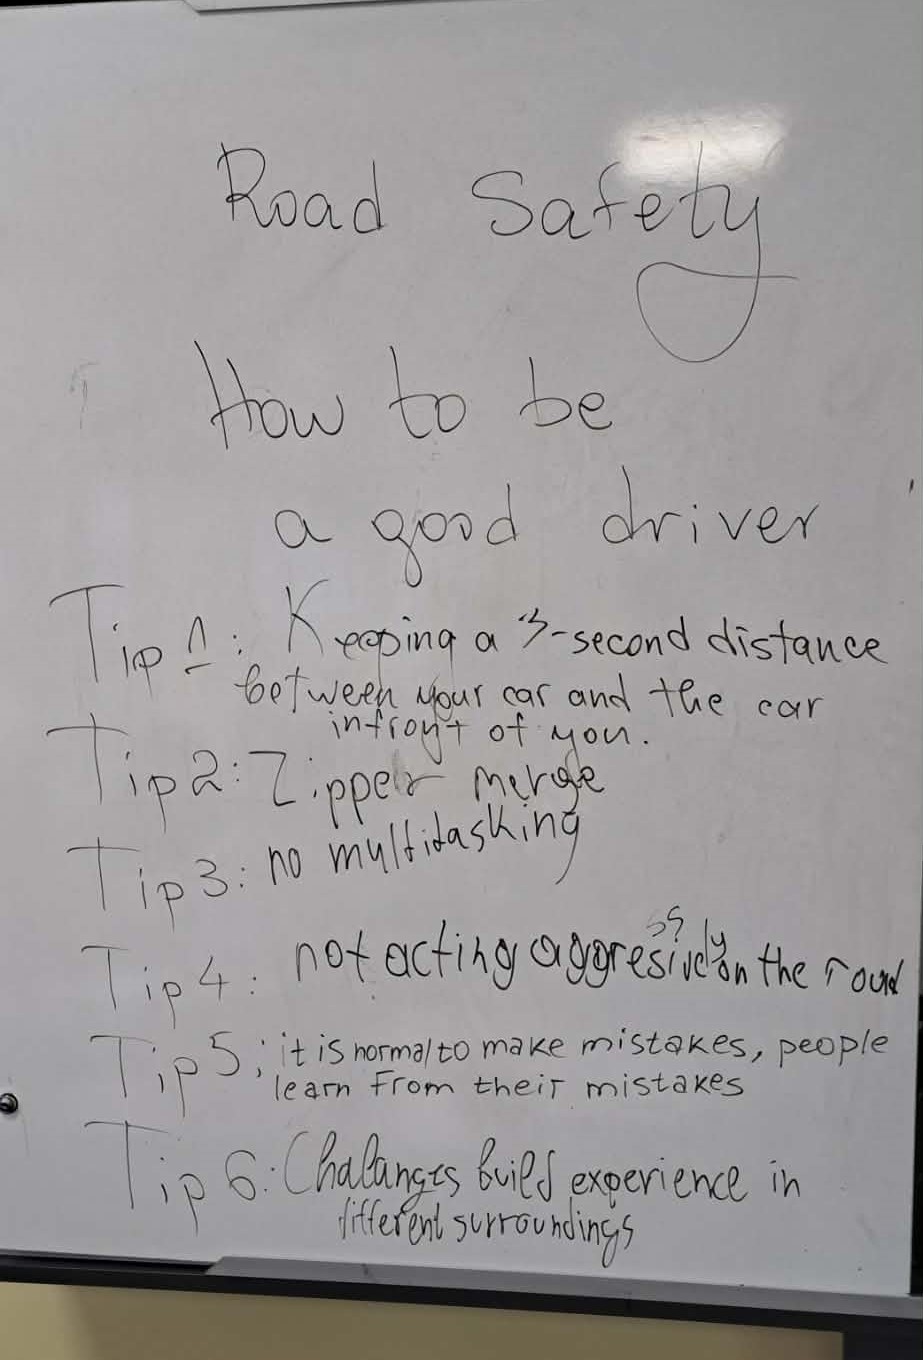 Road Safety
How to be
a good driver
Tip 1: Keeping a 3-second distance
between your car and the car
infront of you.
Tip 2: Zipper merge
Tip 3: no multitasking
Tip 4: not acting aggressively on the road
Tip 5: it is normal to make mistakes, people
learn from their mistakes
Tip 6: Chalanges build experience in
different surroundings